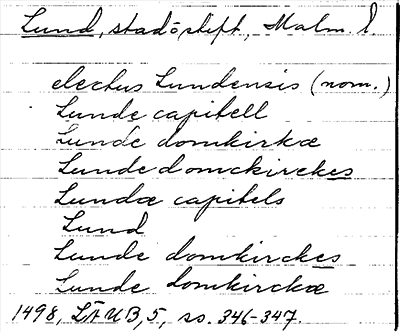 Lund, stad o. stift, Malm. l.
electus Lundensis (nom.)
Lunde capitell
Lunde domkirkæ
Lunde domckirckes
Lundæ capitels
Lund
Lunde domkirckes
Lunde domkirckæ
1498, LÄUB, 5, ss. 346-347.